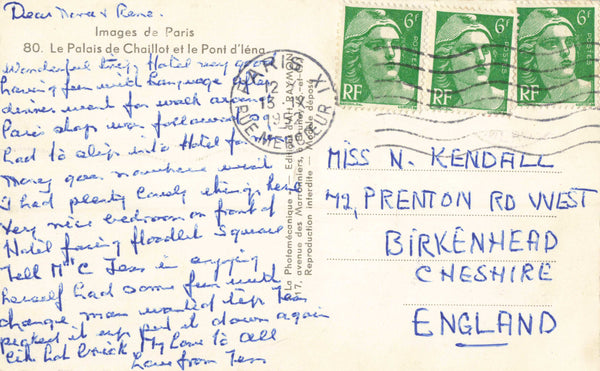 Dear Nora & Rene.
Images de Paris
80. Le Palais de Chaillot et le Pont d'Iéna
Wonderful trip, Hotel very good
having fun with Language. After
dinner went for walk around
Paris shops was followed
had to slip into Hotel for
Money goes nowhere wish
i had plenty lovely things here
Very nice bedroom on front of
Hotel facing floodlit Square
Tell Mrs C Jess is enjoying
herself had some fun with
change man wanted tip Jess
picked it up put it down again
like hot brick My Love to All
Love from Jess
PARIS XI
12
15 -IX
RUE MERCŒUR
La Photomécanique - Edition d'Art RAYMON
17, avenue des Marronniers,
Reproduction interdite - Modèle déposé
6F
POSTES
RF
6F
POSTES
RF
6F
POSTES
RF
MISS N. KENDALL
42, PRENTON RD WEST
BIRKENHEAD
CHESHIRE
ENGLAND